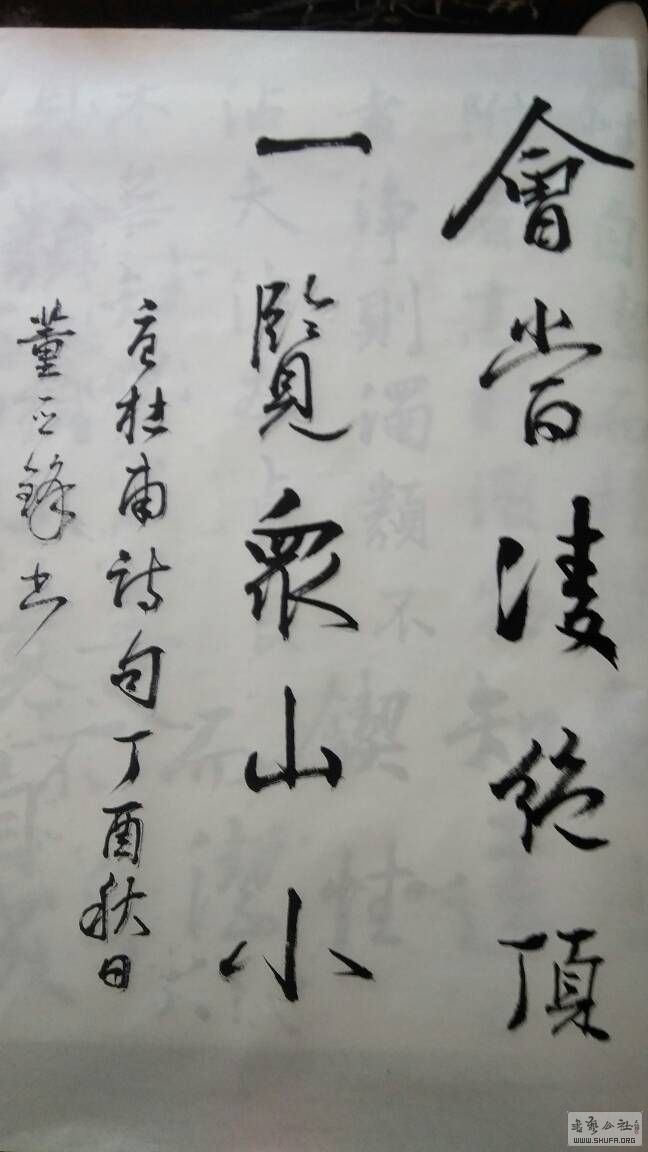 會當凌絕頂
一覽眾山小
唐杜甫詩句丁酉秋日
董正鋒書
書藝公社
WWW.SHUFA.ORG